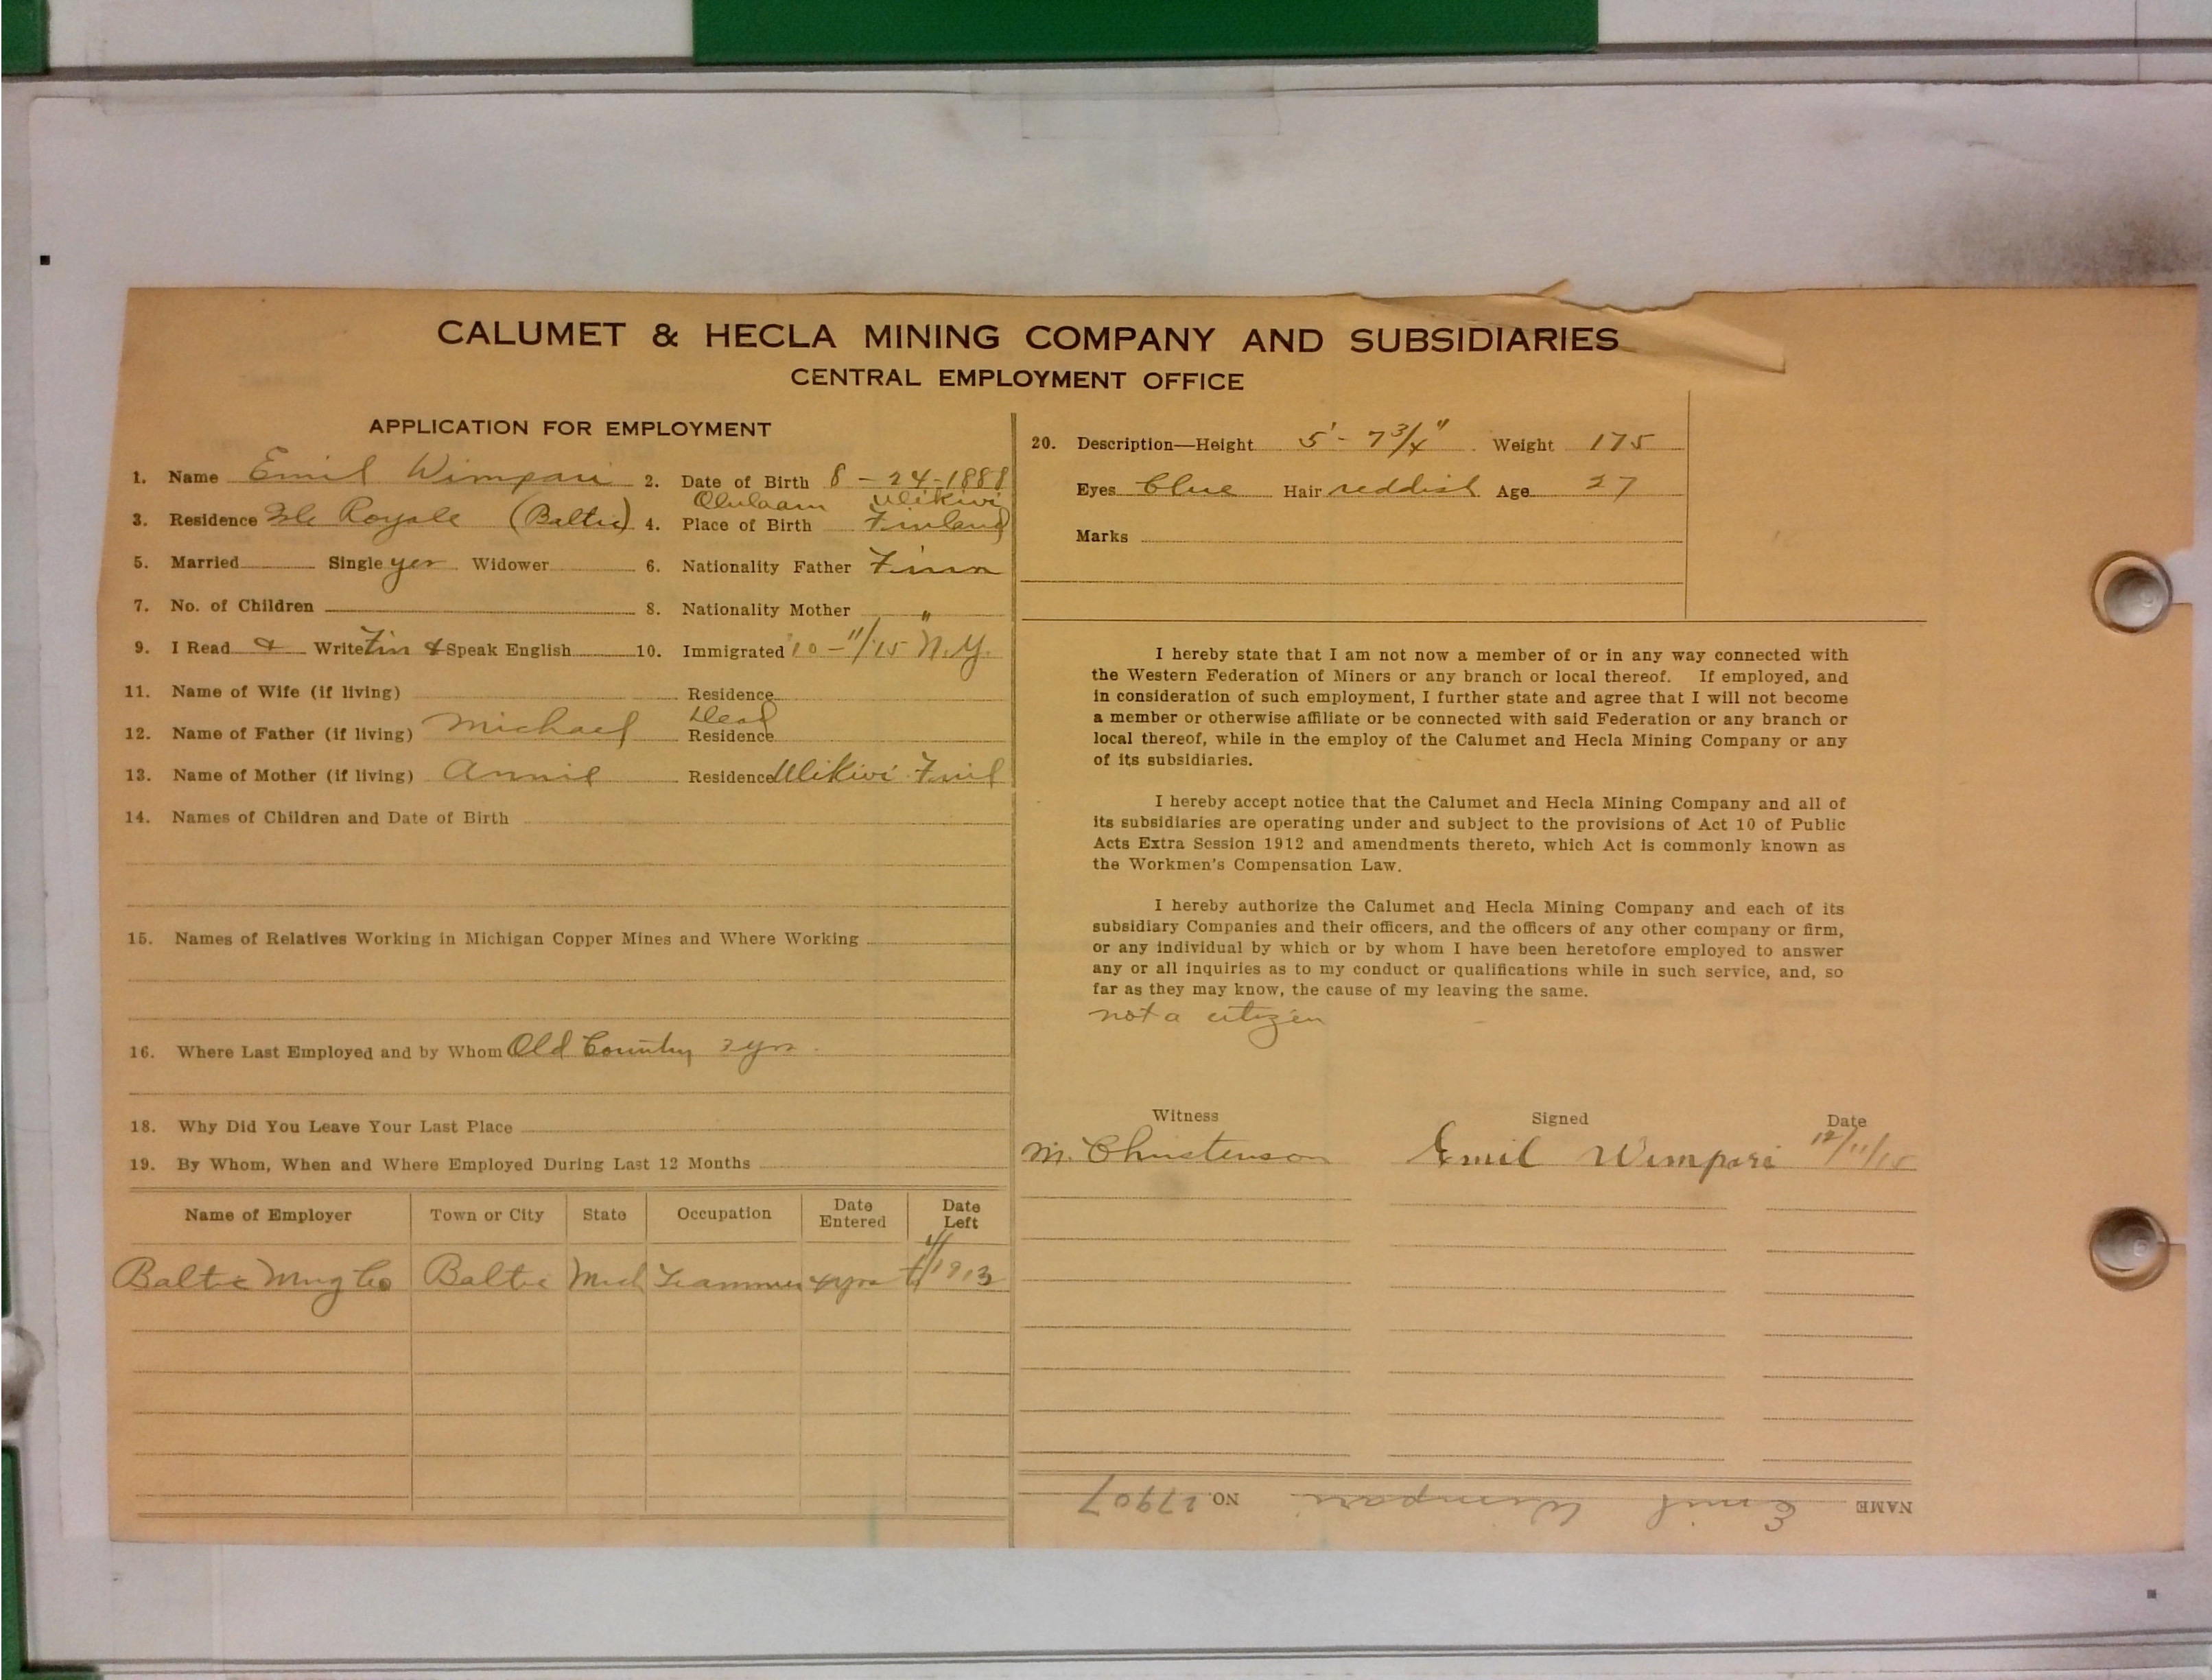 CALUMET & HECLA MINING COMPANY AND SUBSIDIARIES
CENTRAL EMPLOYMENT OFFICE
APPLICATION FOR EMPLOYMENT
1. Name Emil Wimpari 2. Date of Birth 8 - 24 - 1888
Ulikivi
3. Residence Isle Royale (Baltic) 4. Place of Birth Finland
5. Married Single yes Widower 6. Nationality Father Finn
7. No. of Children 8. Nationality Mother "
9. I Read & Write Fin & Speak English 10. Immigrated 10 - 11/15 N.Y.
11. Name of Wife (if living) Residence
Dead
12. Name of Father (if living) Michael Residence
13. Name of Mother (if living) Annie Residence Ulikivi
14. Names of Children and Date of Birth
15. Names of Relatives Working in Michigan Copper Mines and Where Working
16. Where Last Employed and by Whom Old Country yrs.
18. Why Did You Leave Your Last Place
19. By Whom, When and Where Employed During Last 12 Months
Name of Employer Town or City State Occupation Date Entered Date Left
Baltic Mng Co Baltic Mich Trammer 4 yrs 1913
20. Description—Height 5' - 7 3/4" Weight 175
Eyes Blue Hair reddish Age 27
Marks
I hereby state that I am not now a member of or in any way connected with
the Western Federation of Miners or any branch or local thereof. If employed, and
in consideration of such employment, I further state and agree that I will not become
a member or otherwise affiliate or be connected with said Federation or any branch or
local thereof, while in the employ of the Calumet and Hecla Mining Company or any
of its subsidiaries.
I hereby accept notice that the Calumet and Hecla Mining Company and all of
its subsidiaries are operating under and subject to the provisions of Act 10 of Public
Acts Extra Session 1912 and amendments thereto, which Act is commonly known as
the Workmen's Compensation Law.
I hereby authorize the Calumet and Hecla Mining Company and each of its
subsidiary Companies and their officers, and the officers of any other company or firm,
or any individual by which or by whom I have been heretofore employed to answer
any or all inquiries as to my conduct or qualifications while in such service, and, so
far as they may know, the cause of my leaving the same.
not a citizen
Witness Signed Date
M. Christenson Emil Wimpari 12/11/15
NAME Emil Wimpari NO. 27907